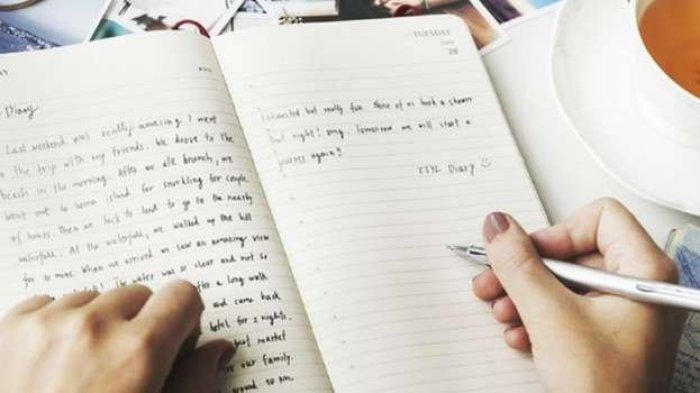 Diary
Last weekend was really amazing. I went
the trip with my friends. We drove to the
beach in the morning. After we ate brunch, we
went out to some island for snorkling for couple
of hours. Then we back to land to go to the nearby
waterfall. At the waterfall, we walked up the hill
for 10 mins. When we arrived we saw an amazing view
waterfall. The water was so clear and not so
after a long walk
and came back
hotel for 2 nights.
market
our family.
around 10 pm.
TUESDAY
July
28
Exhausted but really fun. None of us took a shower
that night! omg. Tomorrow we will start a
journey again!!
TTYL Diary